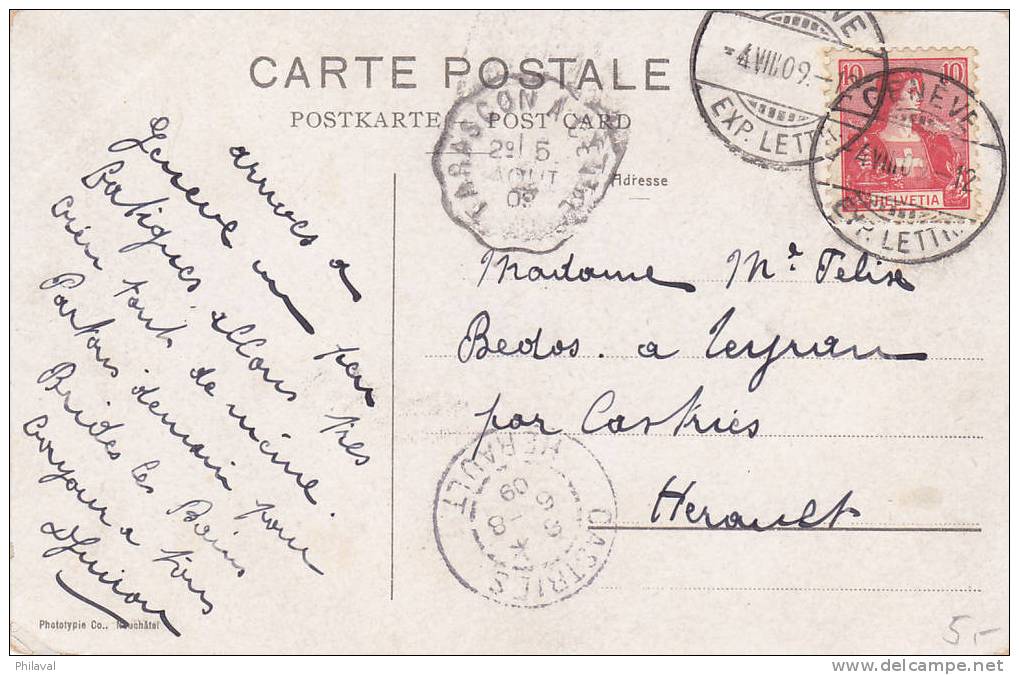 CARTE POSTALE
POSTKARTE POST CARD
Adresse
GENÈVE
4.VIII.09.
EXP. LETTR.
GENÈVE
4.VIII.0 12
EXP. LETTR.
10 10
HELVETIA
TARASCON A CETTE
2º 5
AOUT
09
arrives a
Geneve un peu
fatigues, allons tres
bien tout de meme.
Partons demain pour
Brides les Bains
Bonjour a tous
Madame Mr Felix
Bedos. a Teyran
par Castries
Herault
CASTRIES
HERAULT
6 - 8
09
Phototypie Co., Neuchâtel
5.-
Philaval
www.delcampe.net